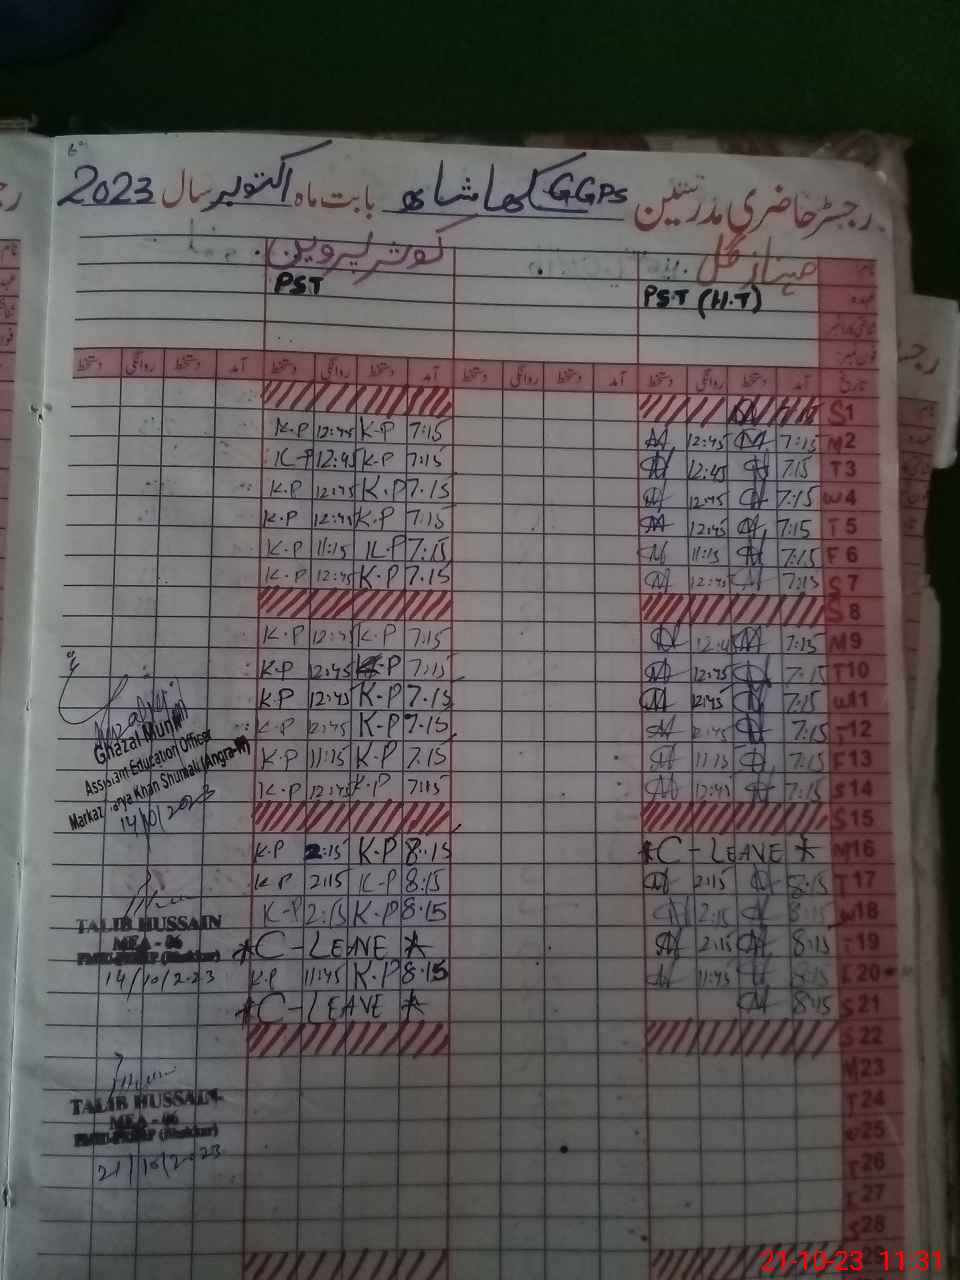 رجسٹر حاضری مدرسین GGPS کلھا شاہ بابت ماہ اکتوبر سال 2023
مہناز گل کوثر پروین
PST (H.T) PST
تاریخ آمد دستخط روانگی دستخط آمد دستخط روانگی دستخط آمد دستخط روانگی دستخط آمد دستخط روانگی دستخط
S1
M2 7:15 12:45 7:15 K.P 12:45 K.P
T3 7:15 12:45 7:15 K.P 12:45 K.P
W4 7:15 12:45 7.15 K.P 12:45 K.P
T5 7:15 12:45 7:15 K.P 12:45 K.P
F6 7:15 11:15 7:15 K.P 11:15 K.P
S7 7:15 12:45 7.15 K.P 12:45 K.P
S8
M9 7:15 12:45 7:15 K.P 12:45 K.P
T10 7:15 12:45 7:15 K.P 12:45 K.P
W11 7:15 12:45 7.15 K.P 12:45 K.P
T12 7:15 12:45 7.15 K.P 12:45 K.P
F13 7:15 11:15 7.15 K.P 11:15 K.P
S14 7:15 12:45 7:15 K.P 12:45 K.P
S15
M16 *C-LEAVE* 8:15 K.P 2:15 K.P
T17 8:15 2:15 8:15 K.P 2:15 K.P
W18 8:15 2:15 8.15 K.P 2:15 K.P
T19 8:15 2:15 *C-LEAVE*
F20 8:15 11:45 8.15 K.P 11:45 K.P
S21 8:15 *C-LEAVE*
S22
M23
T24
W25
T26
F27
S28
Ghazal Munir
Assistant Education Officer
Markaz Darya Khan Shumali (Angra-W)
14/10/2023
TALIB HUSSAIN
MEA - 06
14/10/2023
TALIB HUSSAIN
MEA - 06
21/10/2023
21-10-23 11:31